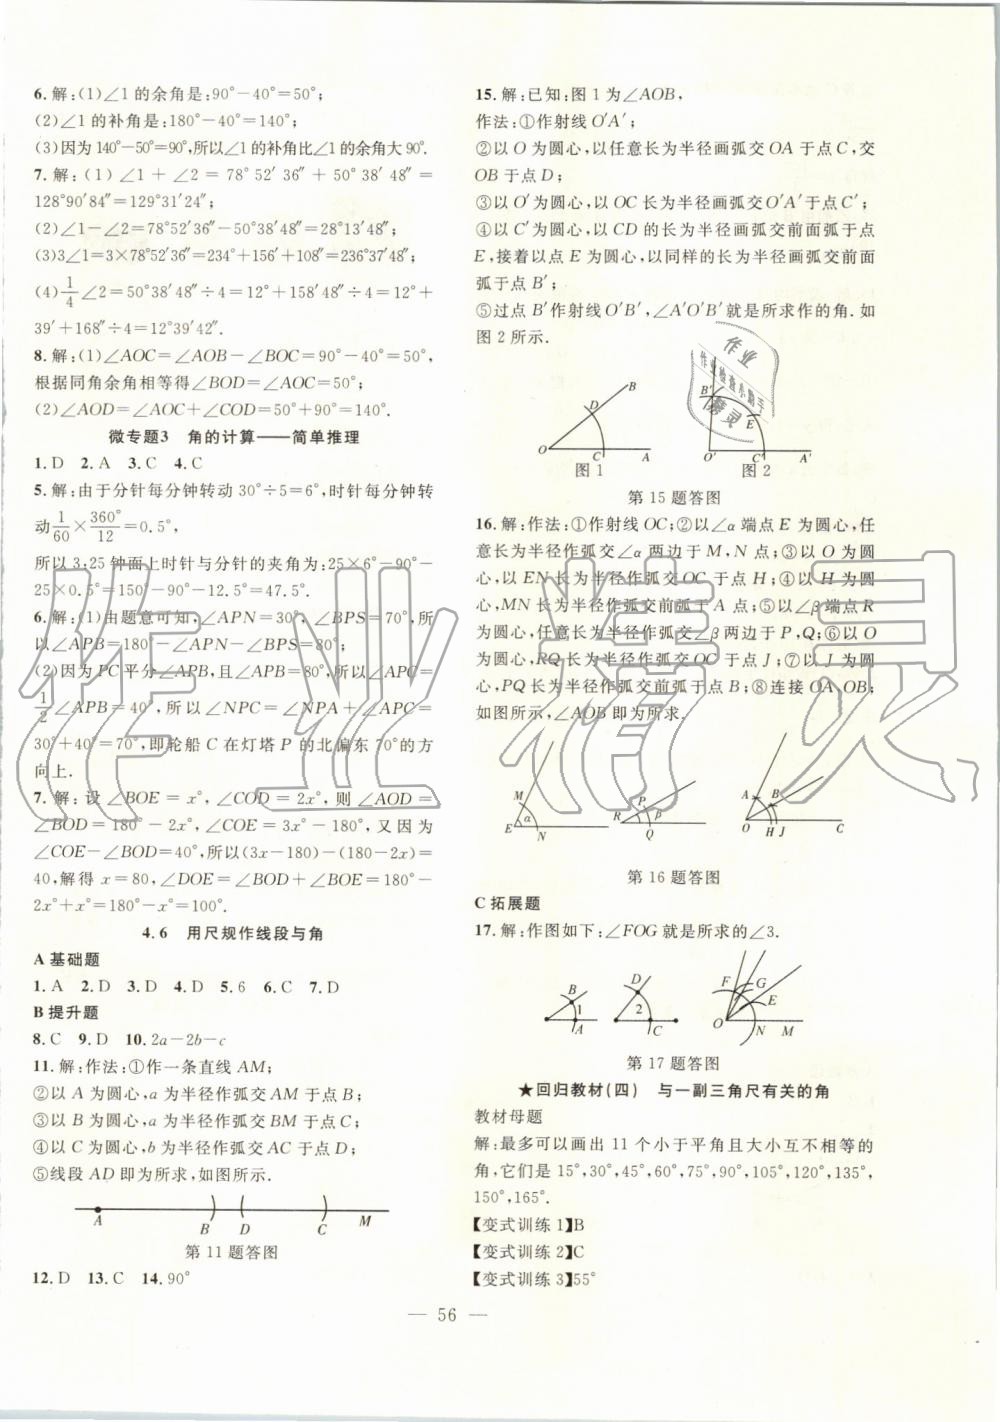 6.解:(1)∠1的余角是:90°-40°=50°;
(2)∠1的补角是:180°-40°=140°;
(3)因为140°-50°=90°,所以∠1的补角比∠1的余角大90°.
7.解:(1)∠1+∠2=78°52′36″+50°38′48″=
128°90′84″=129°31′24″;
(2)∠1-∠2=78°52′36″-50°38′48″=28°13′48″;
(3)3∠1=3×78°52′36″=234°+156′+108″=236°37′48″;
(4)1/4∠2=50°38′48″÷4=12°+158′48″÷4=12°+
39′+168″÷4=12°39′42″.
8.解:(1)∠AOC=∠AOB-∠BOC=90°-40°=50°,
根据同角余角相等得∠BOD=∠AOC=50°;
(2)∠AOD=∠AOC+∠COD=50°+90°=140°.
微专题3 角的计算——简单推理
1.D 2.A 3.C 4.C
5.解:由于分针每分钟转动30°÷5=6°,时针每分钟转
动1/60×360°/12=0.5°,
所以3:25钟面上时针与分针的夹角为:25×6°-90°-
25×0.5°=150°-90°-12.5°=47.5°.
6.解:(1)由题意可知,∠APN=30°,∠BPS=70°,所
以∠APB=180°-∠APN-∠BPS=80°;
(2)因为PC平分∠APB,且∠APB=80°,所以∠APC=
1/2∠APB=40°,所以∠NPC=∠NPA+∠APC=
30°+40°=70°,即轮船C在灯塔P的北偏东70°的方
向上.
7.解:设∠BOE=x°,∠COD=2x°,则∠AOD=
∠BOD=180°-2x°,∠COE=3x°-180°,又因为
∠COE-∠BOD=40°,所以(3x-180)-(180-2x)=
40,解得x=80,∠DOE=∠BOD+∠BOE=180°-
2x°+x°=180°-x°=100°.
4.6 用尺规作线段与角
A基础题
1.A 2.D 3.D 4.D 5.6 6.C 7.D
B提升题
8.C 9.D 10.2a-2b-c
11.解:作法:①作一条直线AM;
②以A为圆心,a为半径作弧交AM于点B;
③以B为圆心,a为半径作弧交BM于点C;
④以C为圆心,b为半径作弧交AC于点D;
⑤线段AD即为所求,如图所示.
A B D C M
第11题答图
12.D 13.C 14.90°
15.解:已知:图1为∠AOB,
作法:①作射线O′A′;
②以O为圆心,以任意长为半径画弧交OA于点C,交
OB于点D;
③以O′为圆心,以OC长为半径画弧交O′A′于点C′;
④以C′为圆心,以CD的长为半径画弧交前面弧于点
E,接着以点E为圆心,以同样的长为半径画弧交前面
弧于点B′;
⑤过点B′作射线O′B′,∠A′O′B′就是所求作的角.如
图2所示.
B D O C A
B′ E O′ C′ A′
图1 图2
第15题答图
16.解:作法:①作射线OC;②以∠α端点E为圆心,任
意长为半径作弧交∠α两边于M,N点;③以O为圆
心,以EN长为半径作弧交OC于点H;④以H为圆
心,MN长为半径作弧交前弧于A点;⑤以∠β端点R
为圆心,任意长为半径作弧交∠β两边于P,Q;⑥以O
为圆心,RQ长为半径作弧交OC于点J;⑦以J为圆
心,PQ长为半径作弧交前弧于点B;⑧连接OA,OB;
如图所示,∠AOB即为所求.
M α E N P β R Q A B O H J C
第16题答图
C拓展题
17.解:作图如下:∠FOG就是所求的∠3.
B 1 A D 2 C F G E O N M
第17题答图
★回归教材(四) 与一副三角尺有关的角
教材母题
解:最多可以画出11个小于平角且大小互不相等的
角,它们是15°,30°,45°,60°,75°,90°,105°,120°,135°,
150°,165°.
【变式训练1】B
【变式训练2】C
【变式训练3】55°
— 56 —
作业
作业检查小助手
精灵
作业精灵